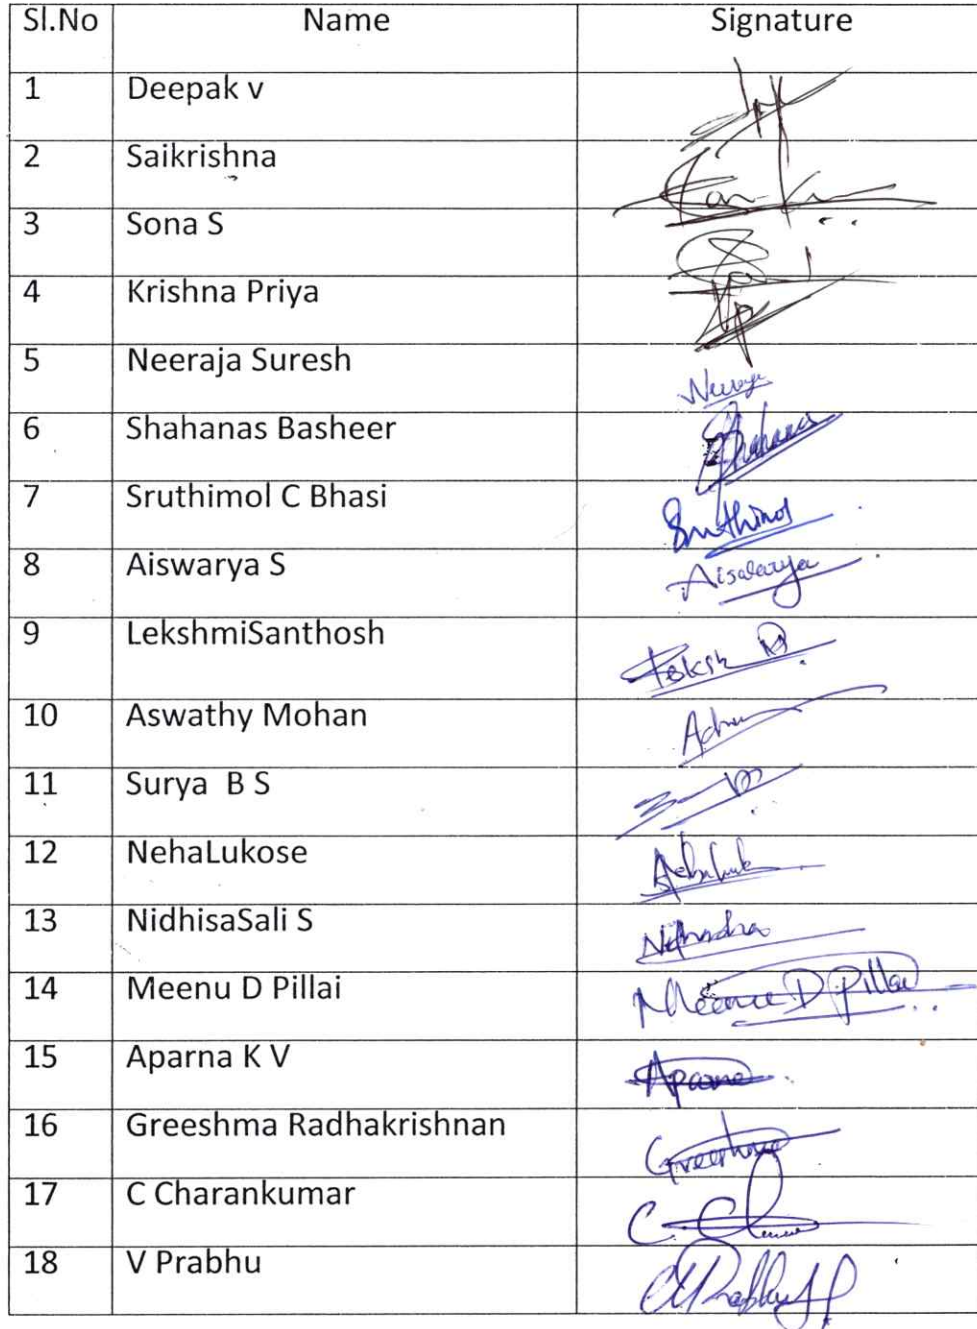 Sl.No Name Signature
1 Deepak v
2 Saikrishna
3 Sona S
4 Krishna Priya
5 Neeraja Suresh
6 Shahanas Basheer Shahanas
7 Sruthimol C Bhasi Sruthimol
8 Aiswarya S Aiswarya
9 LekshmiSanthosh
10 Aswathy Mohan
11 Surya B S
12 NehaLukose
13 NidhisaSali S
14 Meenu D Pillai Meenu D Pillai
15 Aparna K V Aparna
16 Greeshma Radhakrishnan Greeshma
17 C Charankumar
18 V Prabhu